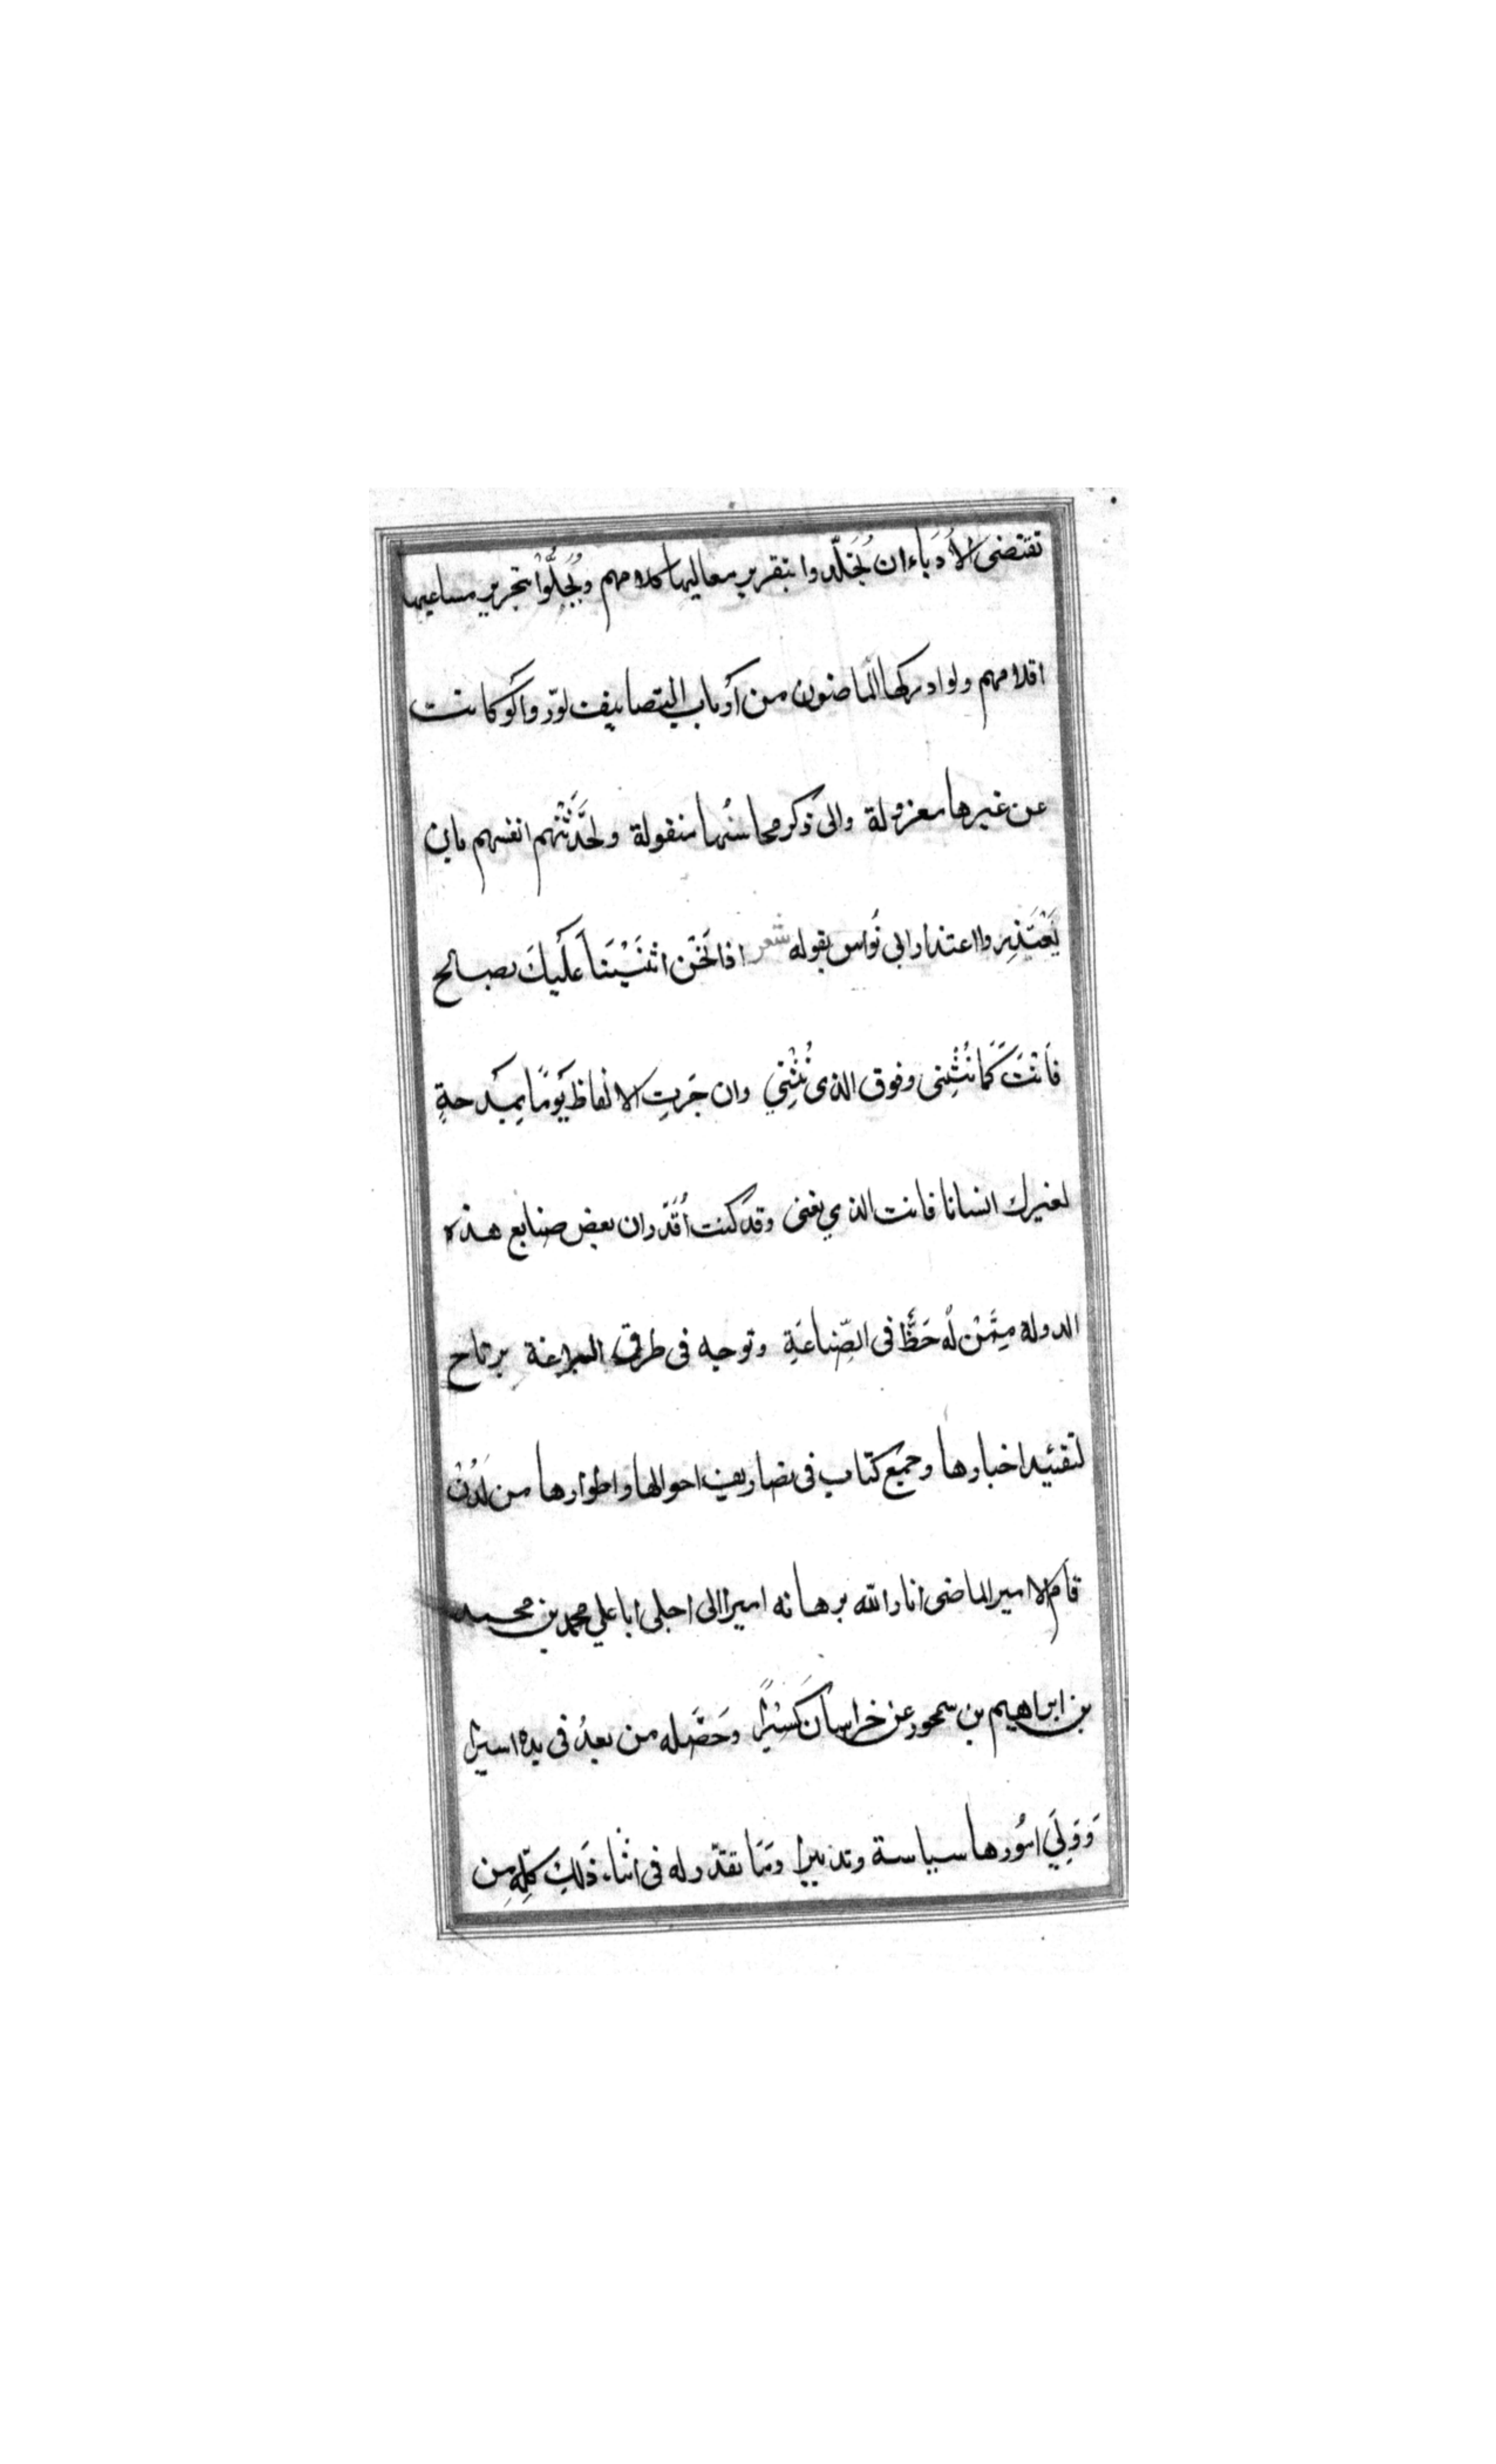 تقتضى الأُدَباءَ ان يُخَلّدوا بتقرير معاليها كلامهم ويُجِلُّوْا بتحرير مساعيها
اقلامهم ولو ادركها الماضون من أرباب التصانيف لودّوا لَو كانت
عن غيرها معزولة والى ذكر محاسنُها منقولة ولحَدَّثَتْهم انفسهم بان
يَعْتَذِروا اعتذار ابى نُواس بقوله شعر اذا نَحْن اثنَيْنَا عَلَيكَ بصالح
فَانتَ كَمَا نُثْنِى وفوق الذى نُثْنِي وان جَرتِ الالفاظ يَومًا بِمِدحةٍ
لغيرك انسانا فانت الذي نعنى وقد كنت أُقَدّر ان بعض صنايع هذه
الدولة مِمَّنْ لهُ حَظٌّ فى الصِّناعَةِ وتوجه فى طرق البراعة يرتاح
لتقييد اخبارها وجمع كتاب فى تصاريف احوالها واطوارها من لَدُنْ
قام الامير الماضى انار الله برهانه اميرا الى اجلى ابا علي محمد بن محمد
بن ابراهيم بن سمجور عن خراسان كَسِيْرًا وحَصَّله من بعدُ فى يده اسيرا
وَوَلِيَ امُورها سياسة وتدبيرا ومَا تقدّر له فى اثناء ذَلِكِ كلِّه مِن